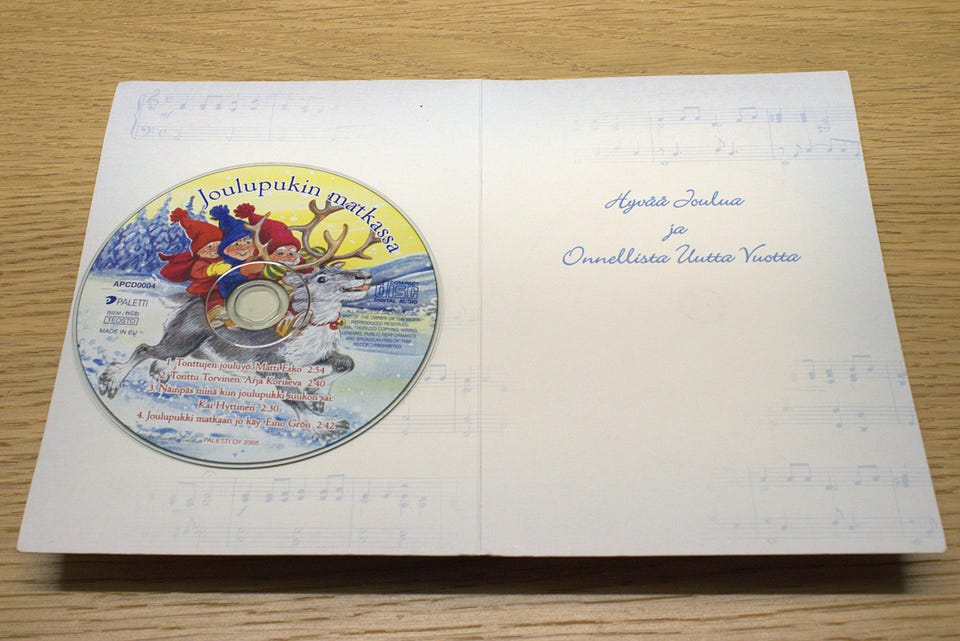 Joulupukin matkassa
APCD0004
PALETTI
BIEM / ncb
TEOSTO
MADE IN EU
COMPACT
disc
DIGITAL AUDIO
ALL RIGHTS OF
AND OF THE OWNER OF THE WORK
REPRODUCED RESERVED.
UNAUTHORIZED COPYING, HIRING,
LENDING, PUBLIC PERFORMANCE
AND BROADCASTING OF THIS
RECORD PROHIBITED.
1. Tonttujen jouluyö: Matti Esko 2:54
2. Tonttu Torvinen: Arja Koriseva 2:40
3. Näinpäs minä kun joulupukki suukon sai:
Kai Hyttinen 2:30
4. Joulupukki matkaan jo käy: Eino Grön 2:42
PALETTI OY 2005
Hyvää Joulua
ja
Onnellista Uutta Vuotta